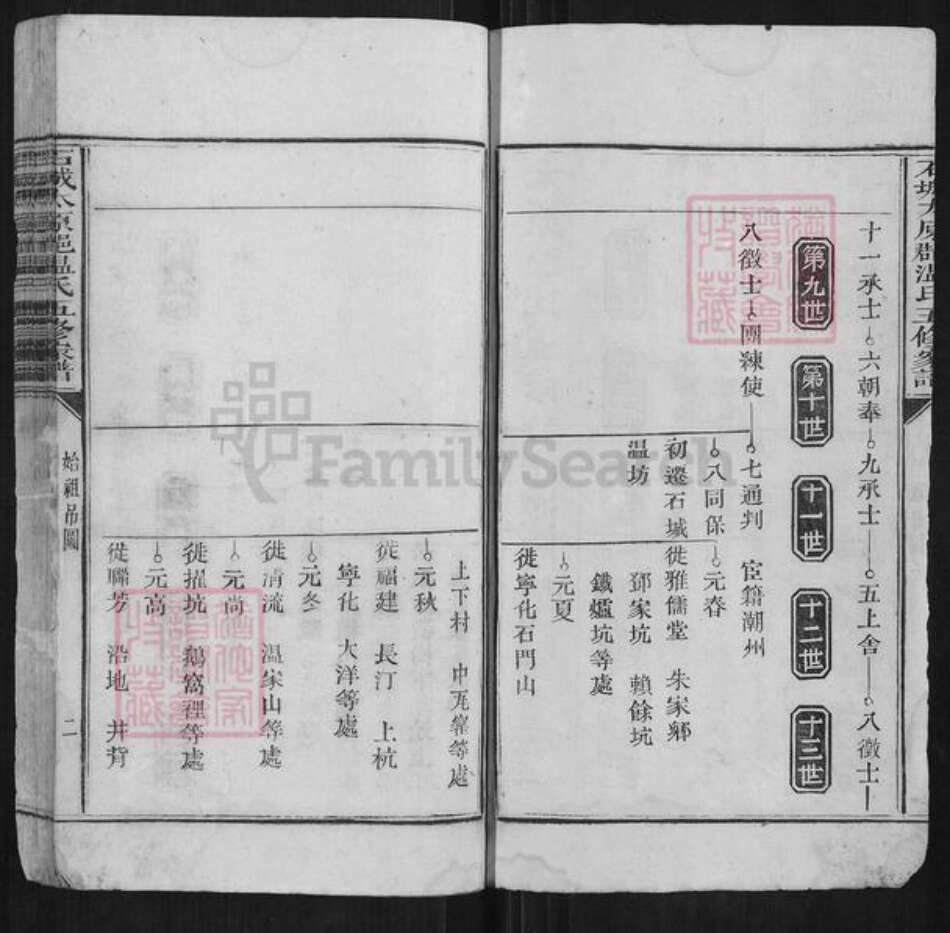 石城太原郡溫氏五修家譜
十一承士 六朝奉 九承士 五上舍 八徵士
第九世
第十世
十一世
十二世
十三世
八徵士 團練使 七通判 宦籍潮州
八同保 元春
初遷石城 徙雅儒堂 朱家鄉
温坊 鄧家坑 賴餘坑
鐵爐坑等處
元夏
徙寧化石門山
上下村 中瓦窰等處
元秋
徙福建 長汀 上杭
寧化 大洋等處
元冬
徙清流 溫家山等處
元尚
徙擢坑 鵝窩裡等處
元高
徙聯芳 沿地 井背
石城太原郡溫氏五修家譜
始祖吊圖
二
收藏
FamilySearch